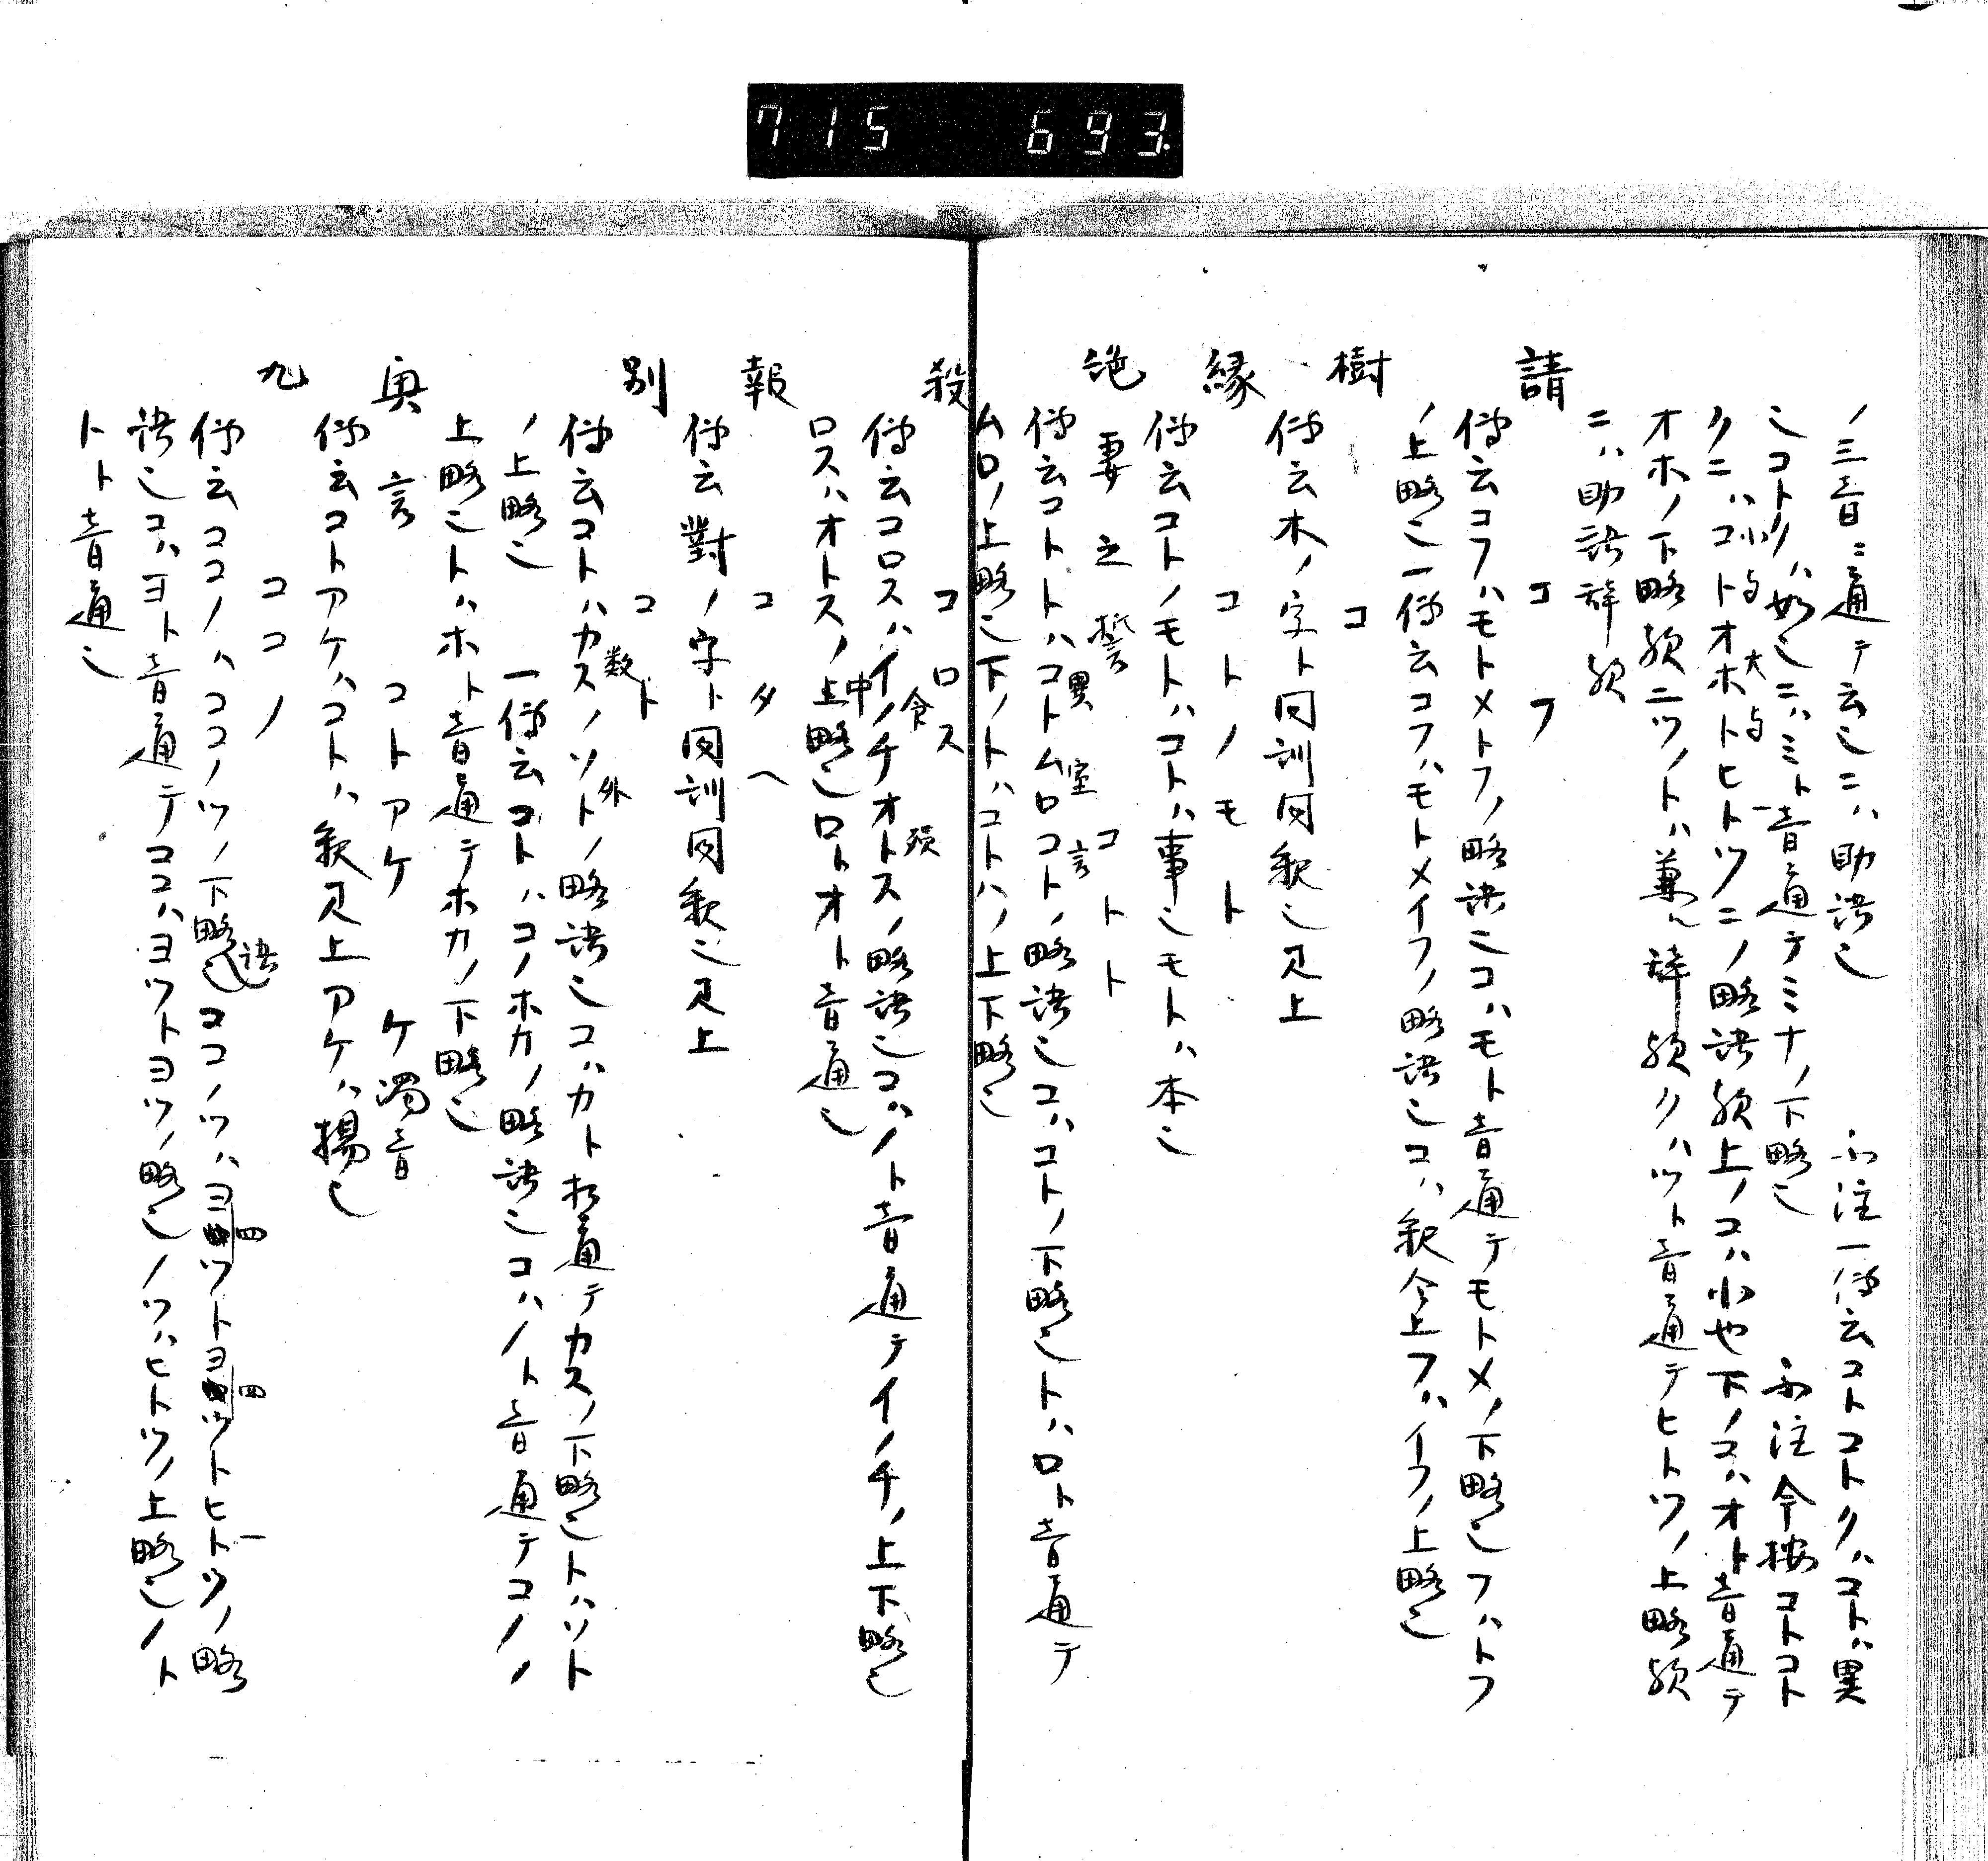 715 693.
ノ三音ニ通テ云也ニハ助語也 ふ注一伝云コトコトクハコトハ異
也コトクハ如也ニハミト音通テミナノ下略也 ふ注今按コトコト
クニハコ小ト与オホ大ト与ヒト一ツニノ略語歟上ノコハ小也下ノコハオト音通テ
オホノ下略歟二ツノトハ兼辞歟クハツト音通テヒトツノ上略歟
ニハ助語辞歟
請 コフ
伝云コフハモトメトフノ略語也コハモト音通テモトメノ下略也フハトフ
ノ上略也一伝云コフハモトメイフノ略語也コハ釈仝上フハイフノ上略也
樹 コ
伝云木ノ字ト同訓同釈也見上
縁 コトノモト
伝云コトノモトハコトハ事也モトハ本也
絶妻之誓 コトト
伝云コトトハコト異ムロ室コト言ノ略語也コハコトノ下略也トハロト音通テ
ムロノ上略也下ノトハコトハノ上下略也
殺 コロス
伝云コロスハイノチ命オトス殞ノ略語也コハノト音通テイノチノ上下略也
ロスハオトスノ上中略也ロトオト音通也
報 コタヘ
伝云對ノ字ト同訓同釈也見上
別 コト
伝云コトハカス数ノソト外ノ略語也コハカト相通テカスノ下略也トハソト
ノ上略也 一伝云コトハコノホカノ略語也コハノト音通テコノノ
上略也トハホト音通テホカノ下略也
輿言 コトアケ ケ濁音
伝云コトアケハコトハ釈見上アケハ揚也
九 ココノ
伝云ココノハココノツノ下略語也ココノツハヨ四ツトヨ四ツトヒト一ツノ略
語也コハヨト音通テココハヨツトヨツノ略也ノツハヒトツノ上略也ノト
トト音通也